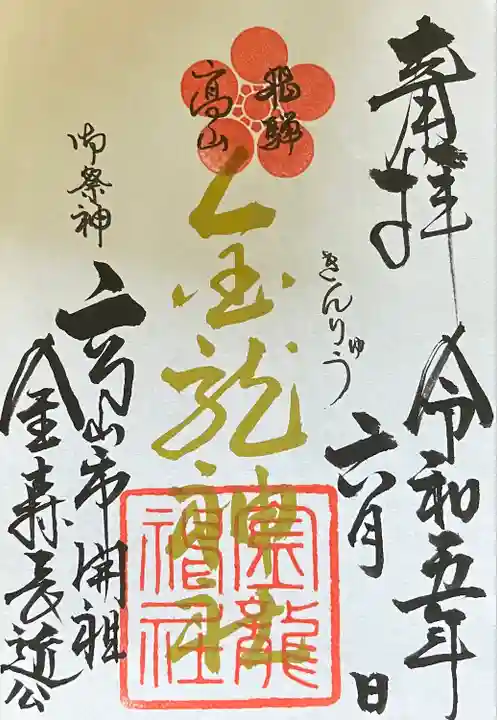 奉拝
令和五年
六月 日
きんりゅう
飛騨
高山
金龍神社
金龍
神社
御祭神
高山市開祖
金森長近公